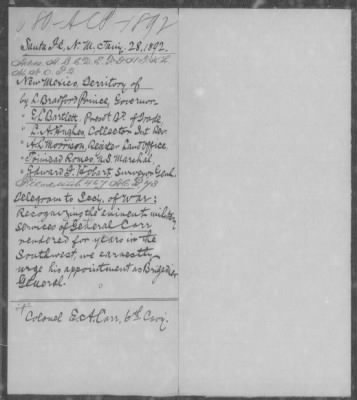 680-ACP-1892
Santa Fé, N. M. Jany. 28, 1892.
New Mexico, Territory of
by L. Bradford Prince, Governor
" E. L. Bartlett, Prest. Bd. of Trade
" L. A. Hughes, Collector Int. Rev.
" A. L. Morrison, Register Land Office,
" Trinidad Romero, U.S. Marshal
" Edward F. Hobart, Surveyor Genl.
Telegram to Secy. of War:
Recognizing the eminent military
services of General Carr
rendered for years in the
Southwest, we earnestly
urge his appointment as Brigadier
General.
Colonel E. A. Carr, 6th Cavy.